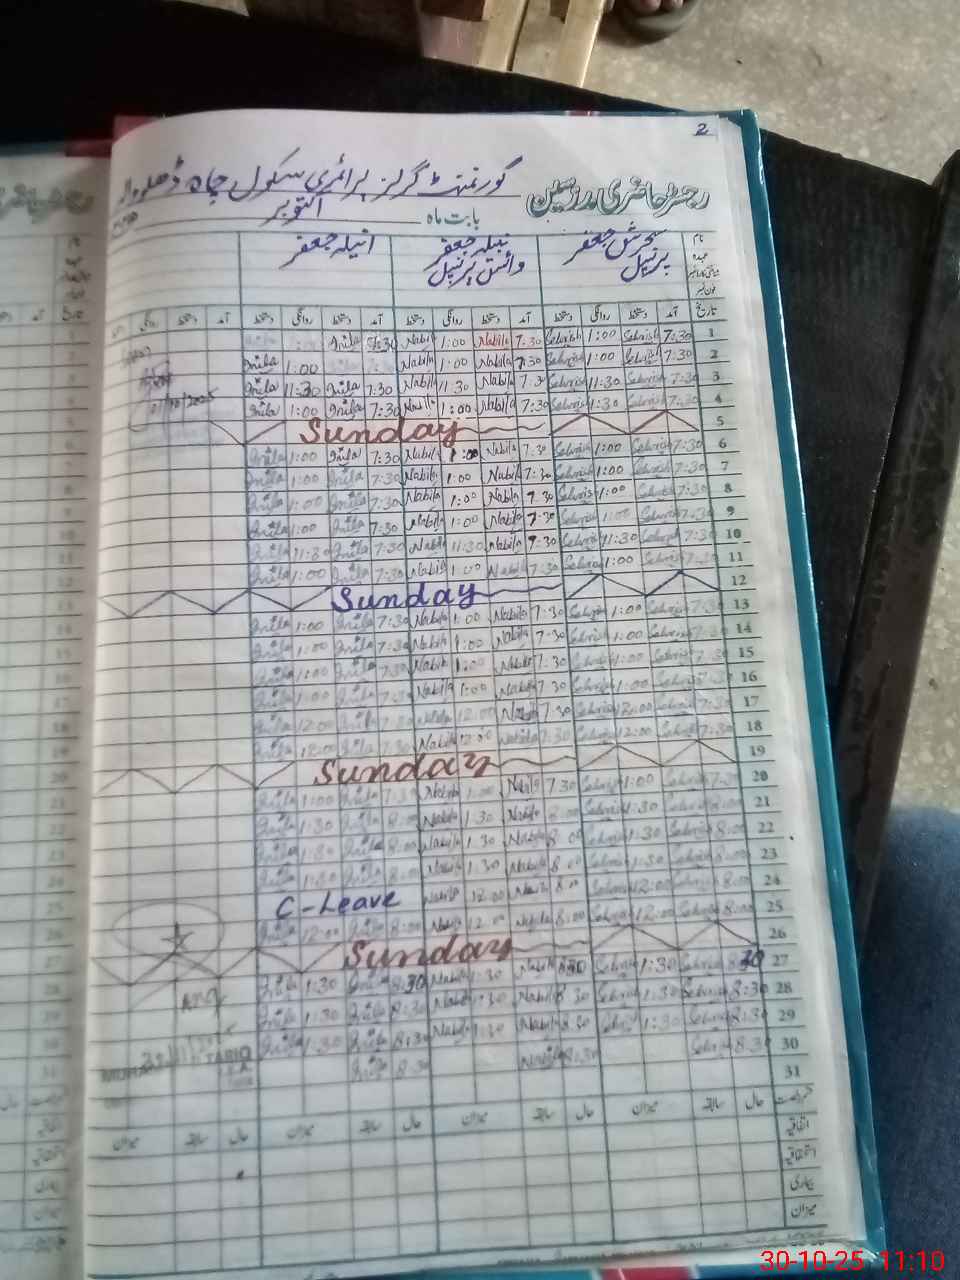 2
گورنمنٹ گرلز پرائمری سکول چاہ
رجسٹر حاضری مدرسین بابت ماہ اکتوبر
نام سحرش جعفر نبیلہ جعفر انیلہ جعفر
عہدہ پرنسپل وائس پرنسپل
تاریخ آمد دستخط روانگی دستخط آمد دستخط روانگی دستخط آمد دستخط روانگی دستخط آمد دستخط روانگی
1 7:30 Sehrish 1:00 Sehrish 7:30 Nabila 1:00 Nabila 7:30 Anila
2 7:30 Sehrish 1:00 Sehrish 7:30 Nabila 1:00 Nabila 1:00 Anila
3 7:30 Sehrish 11:30 Sehrish 7:30 Nabila 11:30 Nabila 7:30 Anila 11:30 Anila
4 7:30 Sehrish 1:30 Sehrish 7:30 Nabila 1:00 Nabila 7:30 Anila 1:00 Anila
01/10/2025
5 Sunday
6 7:30 Sehrish 1:00 Sehrish 7:30 Nabila 1:00 Nabila 7:30 Anila 1:00 Anila
7 7:30 Sehrish 1:00 Sehrish 7:30 Nabila 1:00 Nabila 7:30 Anila 1:00 Anila
8 7:30 Sehrish 1:00 Sehrish 7:30 Nabila 1:00 Nabila 7:30 Anila 1:00 Anila
9 7:30 Sehrish 1:00 Sehrish 7:30 Nabila 1:00 Nabila 7:30 Anila 1:00 Anila
10 7:30 Sehrish 11:30 Sehrish 7:30 Nabila 11:30 Nabila 7:30 Anila 11:30 Anila
11 7:30 Sehrish 1:00 Sehrish 7:30 Nabila 1:00 Nabila 7:30 Anila 1:00 Anila
12 Sunday
13 7:30 Sehrish 1:00 Sehrish 7:30 Nabila 1:00 Nabila 7:30 Anila 1:00 Anila
14 7:30 Sehrish 1:00 Sehrish 7:30 Nabila 1:00 Nabila 7:30 Anila 1:00 Anila
15 7:30 Sehrish 1:00 Sehrish 7:30 Nabila 1:00 Nabila 7:30 Anila 1:00 Anila
16 7:30 Sehrish 1:00 Sehrish 7:30 Nabila 1:00 Nabila 7:30 Anila 1:00 Anila
17 7:30 Sehrish 12:00 Sehrish 7:30 Nabila 12:00 Nabila 7:30 Anila 12:00 Anila
18 7:30 Sehrish 12:00 Sehrish 7:30 Nabila 12:00 Nabila 7:30 Anila 12:00 Anila
19 Sunday
20 7:30 Sehrish 1:00 Sehrish 7:30 Nabila 1:00 Nabila 7:30 Anila 1:00 Anila
21 8:00 Sehrish 1:30 Sehrish 8:00 Nabila 1:30 Nabila 8:00 Anila 1:30 Anila
22 8:00 Sehrish 1:30 Sehrish 8:00 Nabila 1:30 Nabila 8:00 Anila 1:30 Anila
23 8:00 Sehrish 1:30 Sehrish 8:00 Nabila 1:30 Nabila 8:00 Anila 1:30 Anila
24 8:00 Sehrish 12:00 Sehrish 8:00 Nabila 12:00 Nabila C-Leave
25 8:00 Sehrish 12:00 Sehrish 8:00 Nabila 12:00 Nabila 8:00 Anila 12:00 Anila
26 Sunday
27 8:30 Sehrish 1:30 Sehrish 8:30 Nabila 1:30 Nabila 8:30 Anila 1:30 Anila
28 8:30 Sehrish 1:30 Sehrish 8:30 Nabila 1:30 Nabila 8:30 Anila 1:30 Anila
29 8:30 Sehrish 1:30 Sehrish 8:30 Nabila 1:30 Nabila 8:30 Anila 1:30 Anila
30 8:30 Sehrish 8:30 Nabila 8:30 Anila
TARIQ
31
حال سابقہ میزان حال سابقہ میزان حال سابقہ میزان حال سابقہ میزان
اتفاقیہ
استحقاقیہ
بیماری
میزان
30-10-25 11:10